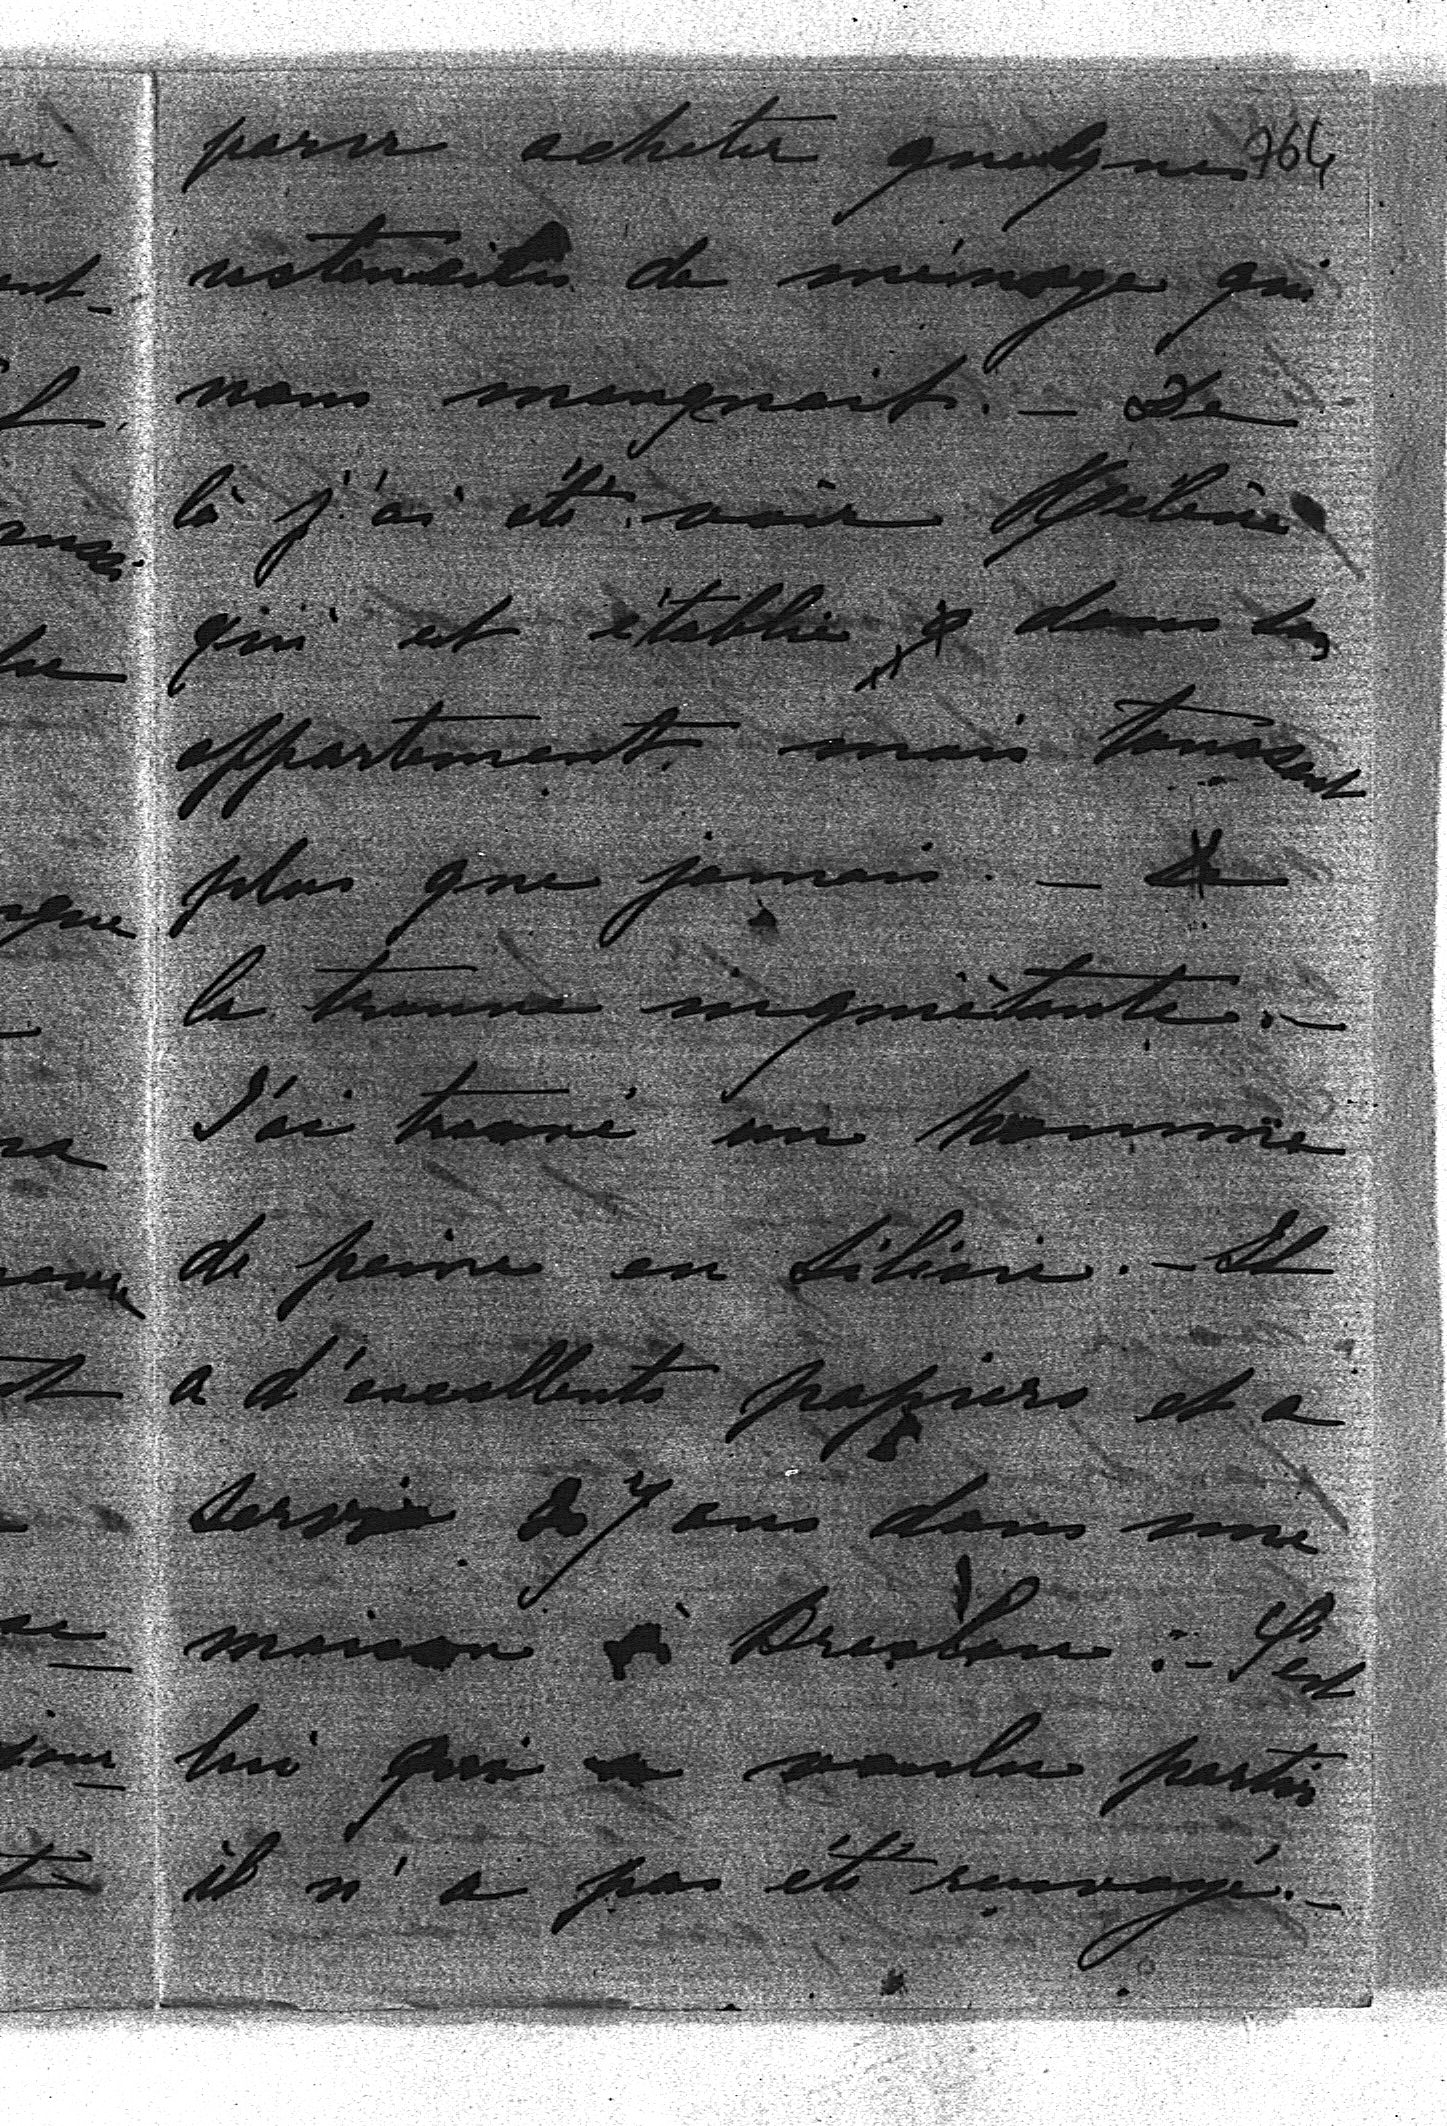 pour acheter quelques 764
ustensiles de ménage qui
nous manquait. – De
là j'ai été voir Hélène
qui est établie dans son
appartement, mais toussant
plus que jamais. – Je
la trouve inquiétante. –
J'ai trouvé un homme
de peine en Silésie. – Il
a d'excellents papiers et a
servi 27 ans dans une
maison à Breslau : – C'est
lui qui a voulu partir
il n'a pas été renvoyé. –